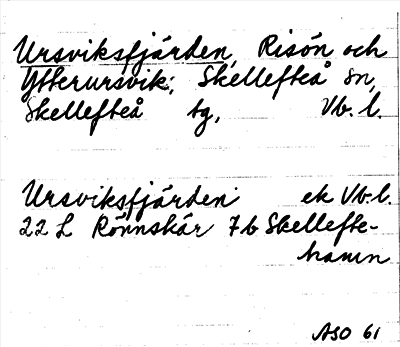 Ursviksfjärden, Risön och
Ytterursvik; Skellefteå sn,
Skellefteå tg, Vb. l.
Ursviksfjärden ek Vb.l.
22 L Rönnskär 7b Skellefte-
hamn
ASO 61